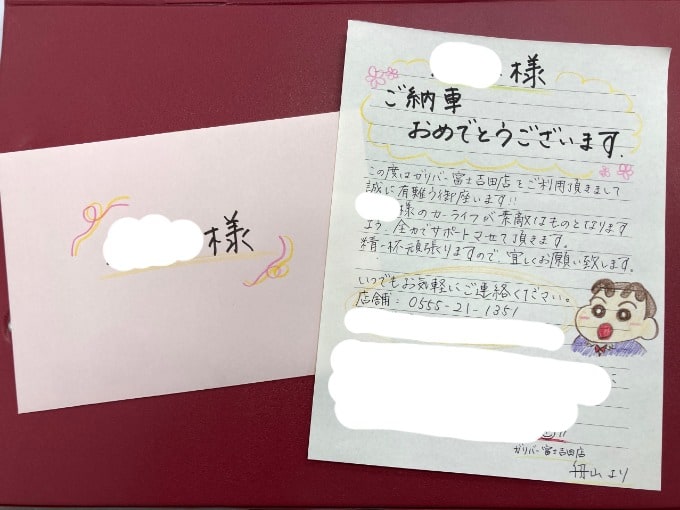 様
様
ご納車
おめでとうございます.
この度はガリバー富士吉田店をご利用頂きまして
誠に有難う御座います!!
様のカーライフが素敵なものとなります
よう、全力でサポートさせて頂きます。
精一杯頑張りますので、宜しくお願い致します。
いつでもお気軽にご連絡ください。
店舗:0555-21-1351
ガリバー富士吉田店
舟山より